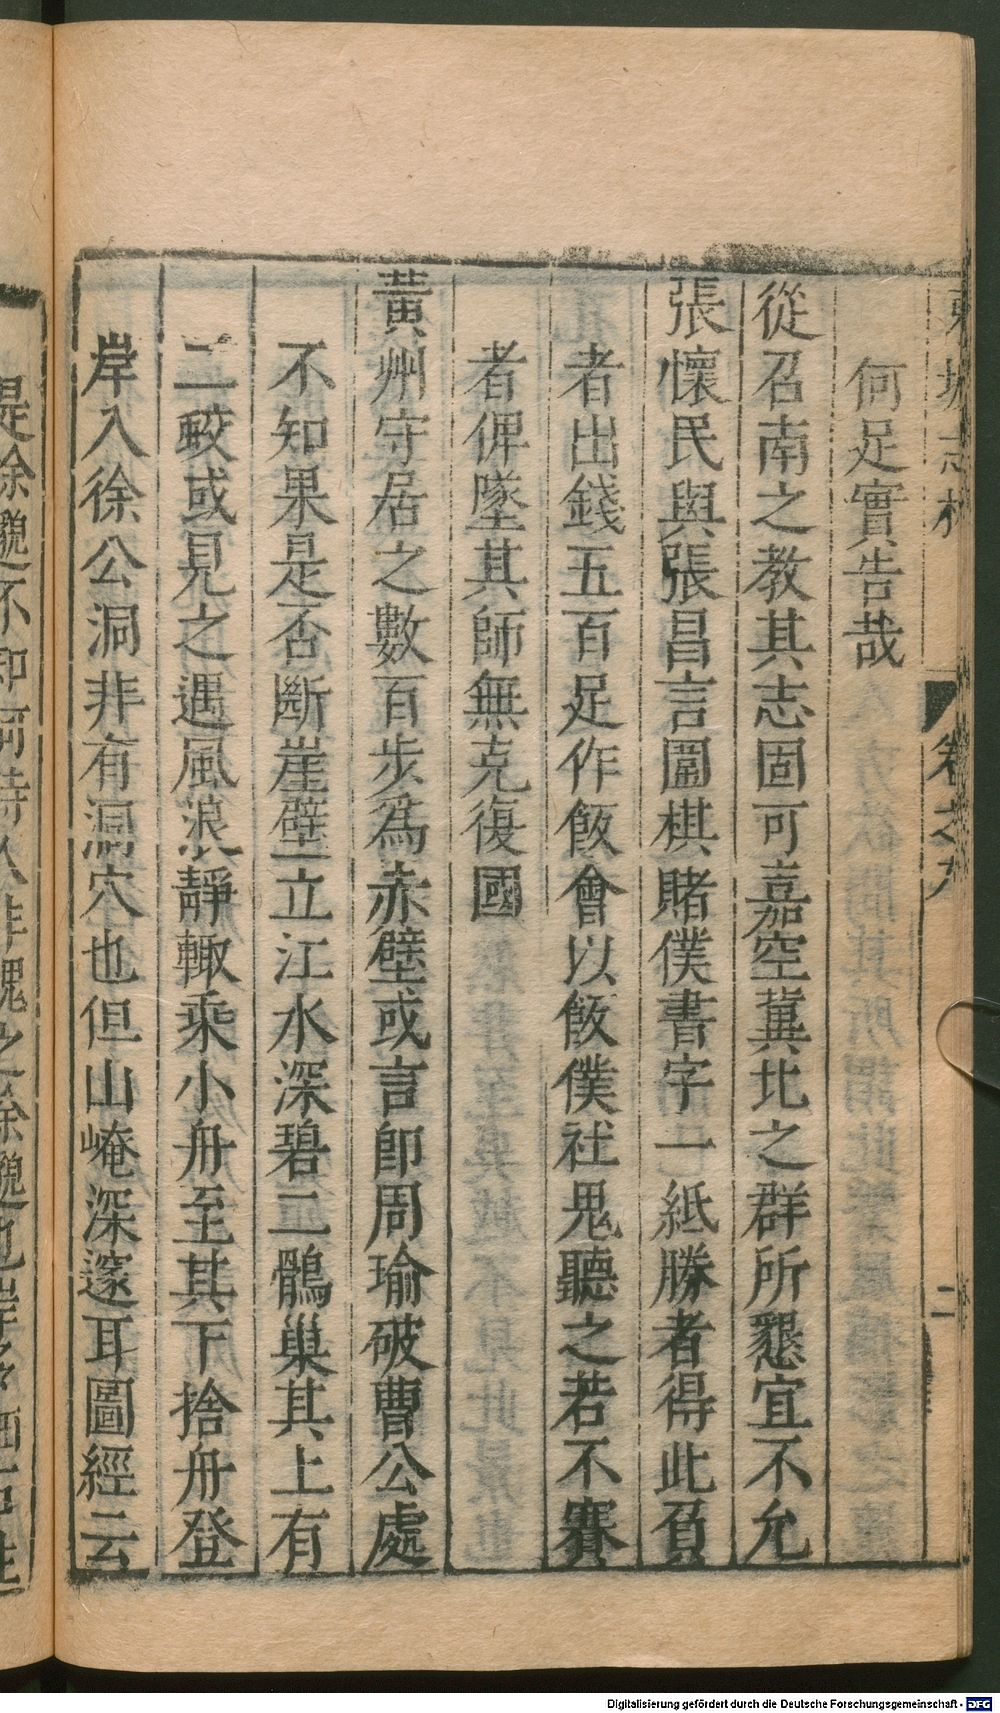 東坡志林
卷之九
二
何足實告哉
從召南之教其志固可嘉空冀北之群所懇宜不允
張懷民與張昌言圍棋賭僕書字一紙勝者得此負
者出錢五百足作飯會以飯僕社鬼聽之若不賽
者俾墜其師無克復國
黃州守居之數百步為赤壁或言卽周瑜破曹公處
不知果是否斷崖壁立江水深碧二鶻巢其上有
二蛟或見之遇風浪靜輙乘小舟至其下捨舟登
岸入徐公洞非有洞穴也但山崦深邃耳圖經云
是徐邈不知何時人非魏之徐邈也岸
Digitalisierung gefördert durch die Deutsche Forschungsgemeinschaft - DFG